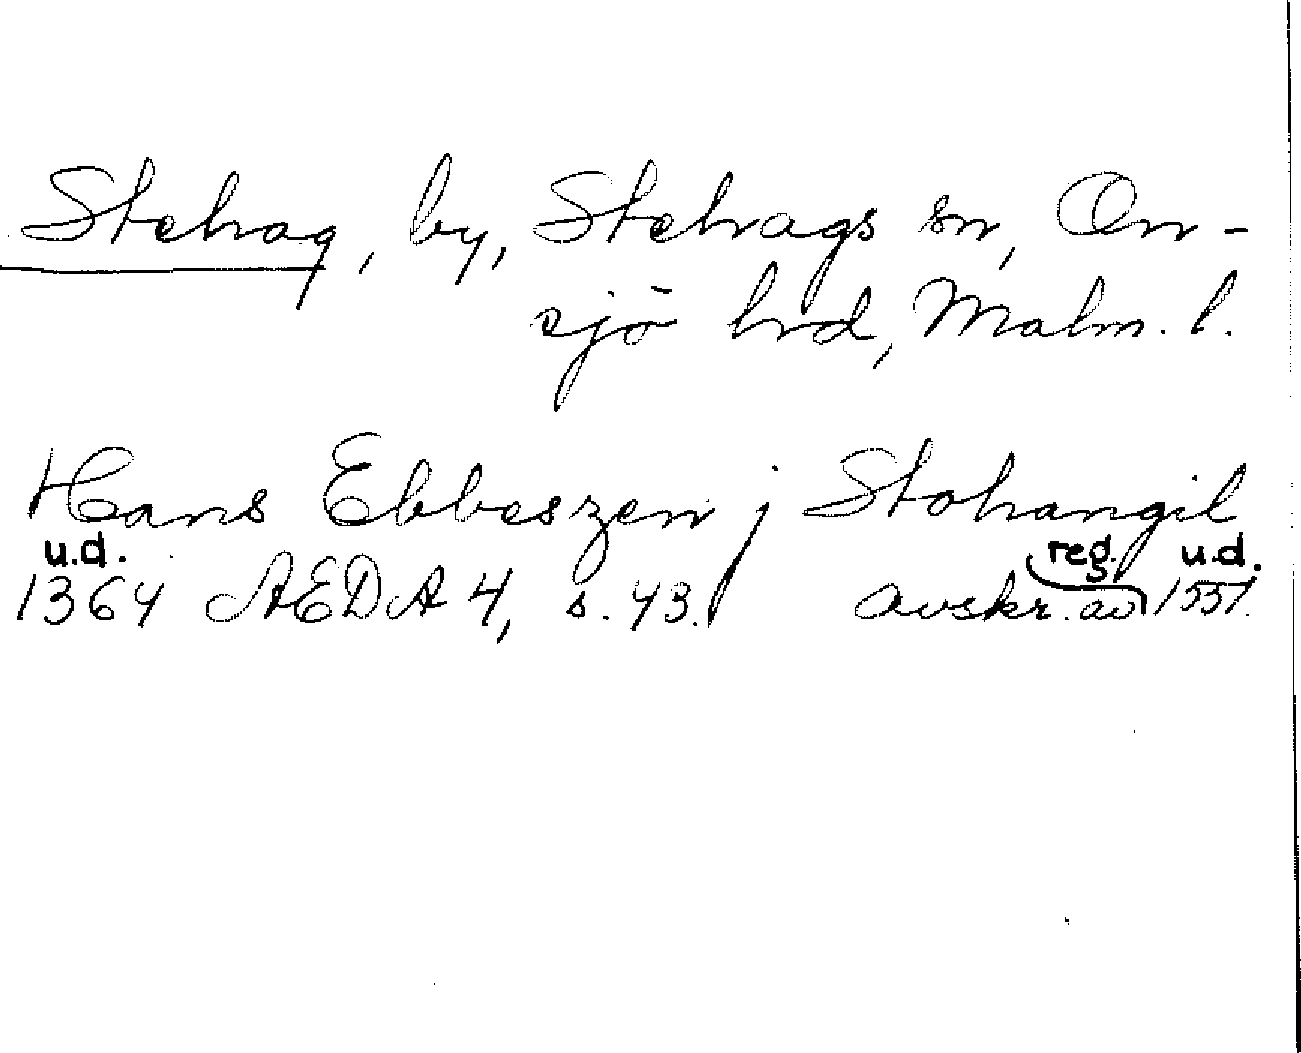 Stehag, by, Stehags sn, On-
sjö hrd, Malm. l.
Hans Ebbeszen j Stohangil
u.d. reg. u.d.
1364 ÆDA 4, s. 43. avskr. av 1551.